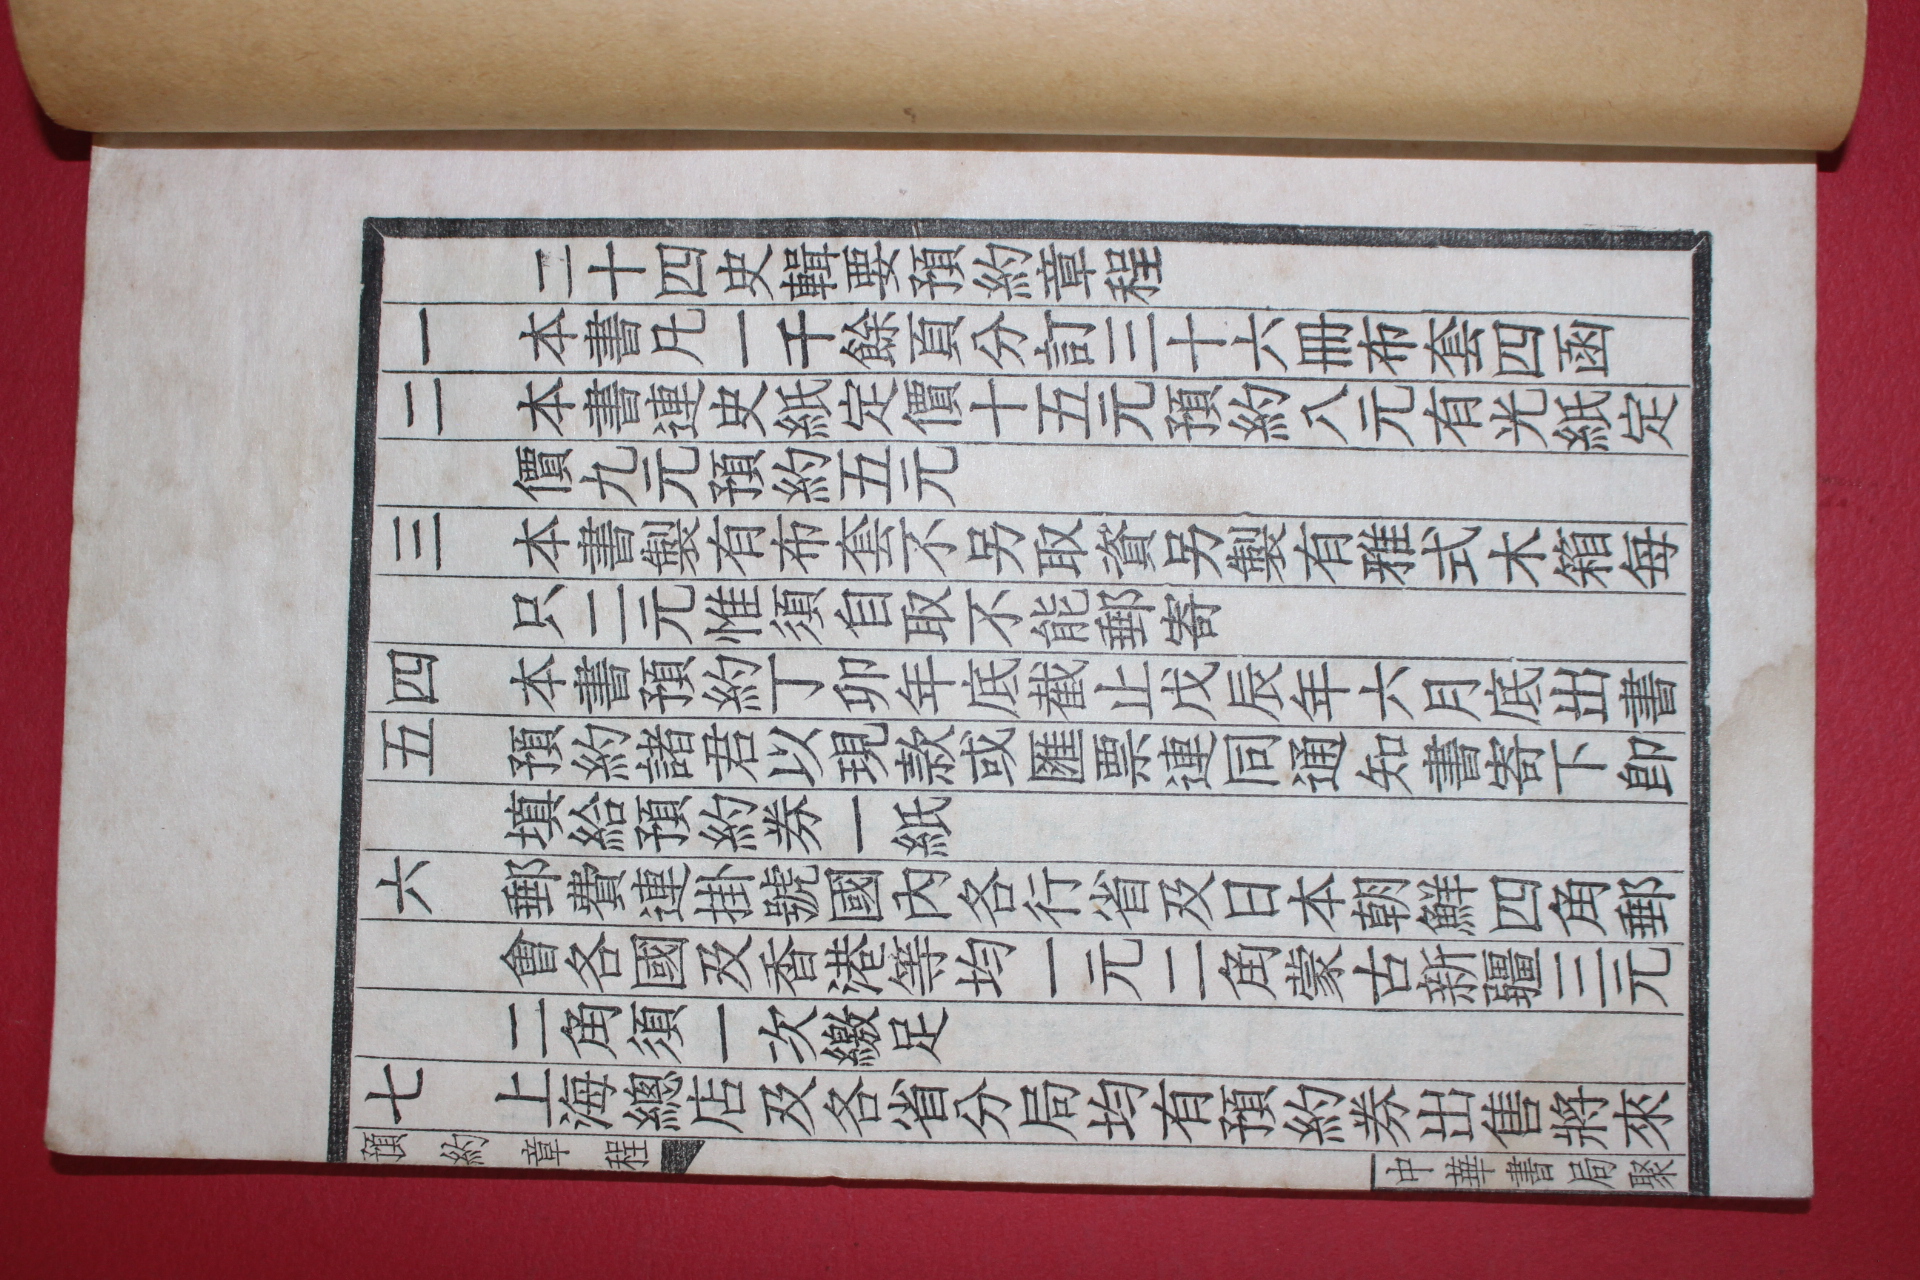 二十四史輯要預約章程
一 本書凡一千餘頁分訂三十六冊布套四函
二 本書連史紙定價十五元預約八元有光紙定
價九元預約五元
三 本書製有布套不另取資另製有雅式木箱每
只二元惟須自取不能郵寄
四 本書預約丁卯年底截止戊辰年六月底出書
五 預約諸君以現款或匯票連同通知書寄下卽
填給預約券一紙
六 郵費連掛號國內各行省及日本朝鮮四角郵
會各國及香港等均一元二角蒙古新疆三元
二角須一次繳足
七 上海總店及各省分局均有預約券出售將來
預約章程
中華書局聚